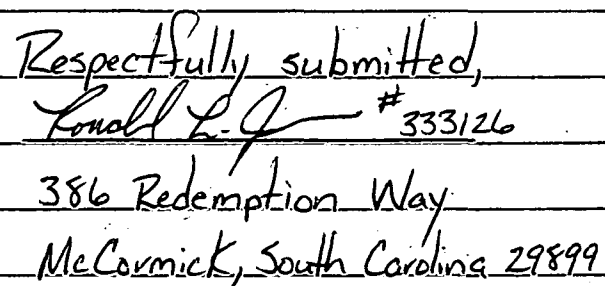 Respectfully submitted,
Ronald L. #333126
386 Redemption Way
McCormick, South Carolina 29899